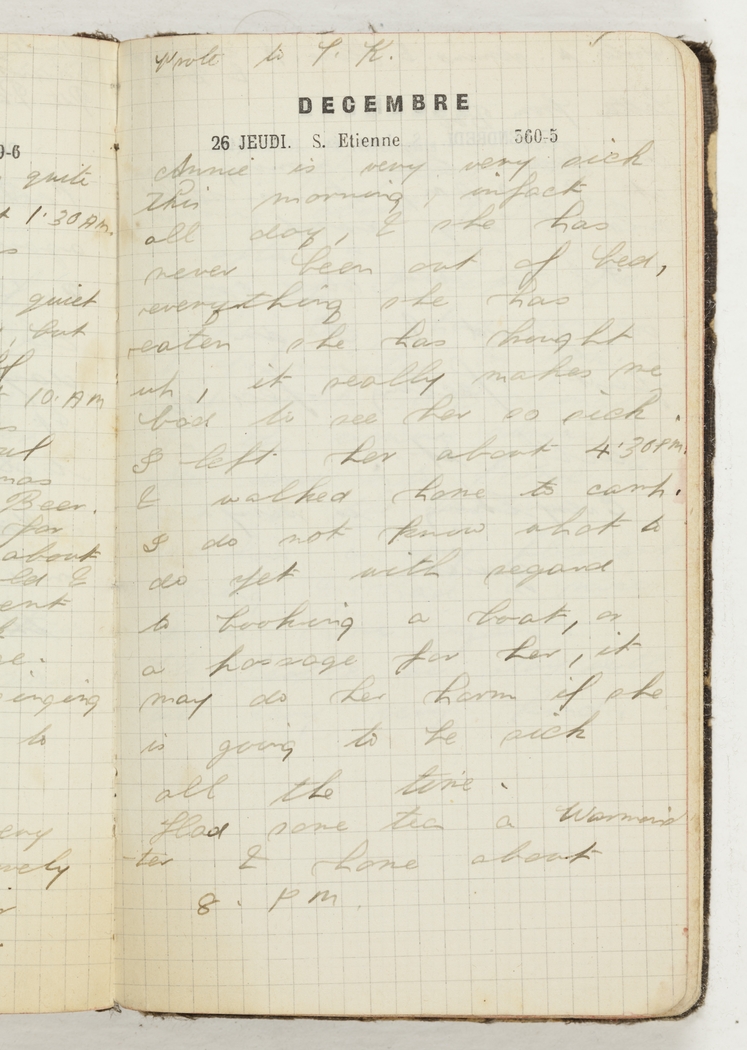 9-6
quite
1.30 AM.
quiet
, but
10. AM
Beer.
for
about
ld &
ent
inging
to
Wrote to P. K.
DECEMBRE
26 JEUDI. S. Etienne 360-5
Annie is very very sick
this morning, infact
all day, & she has
never been out of bed,
everything she has
eaten she has bought
up, it really makes me
bad to see her so sick.
I left her about 4.30 PM.
& walked home to camp.
I do not know what to
do yet with regard
to booking a boat, or
a passage for her, it
may do her harm if she
is going to be sick
all the time.
Had some tea a Warmins
ter & home about
8. PM.